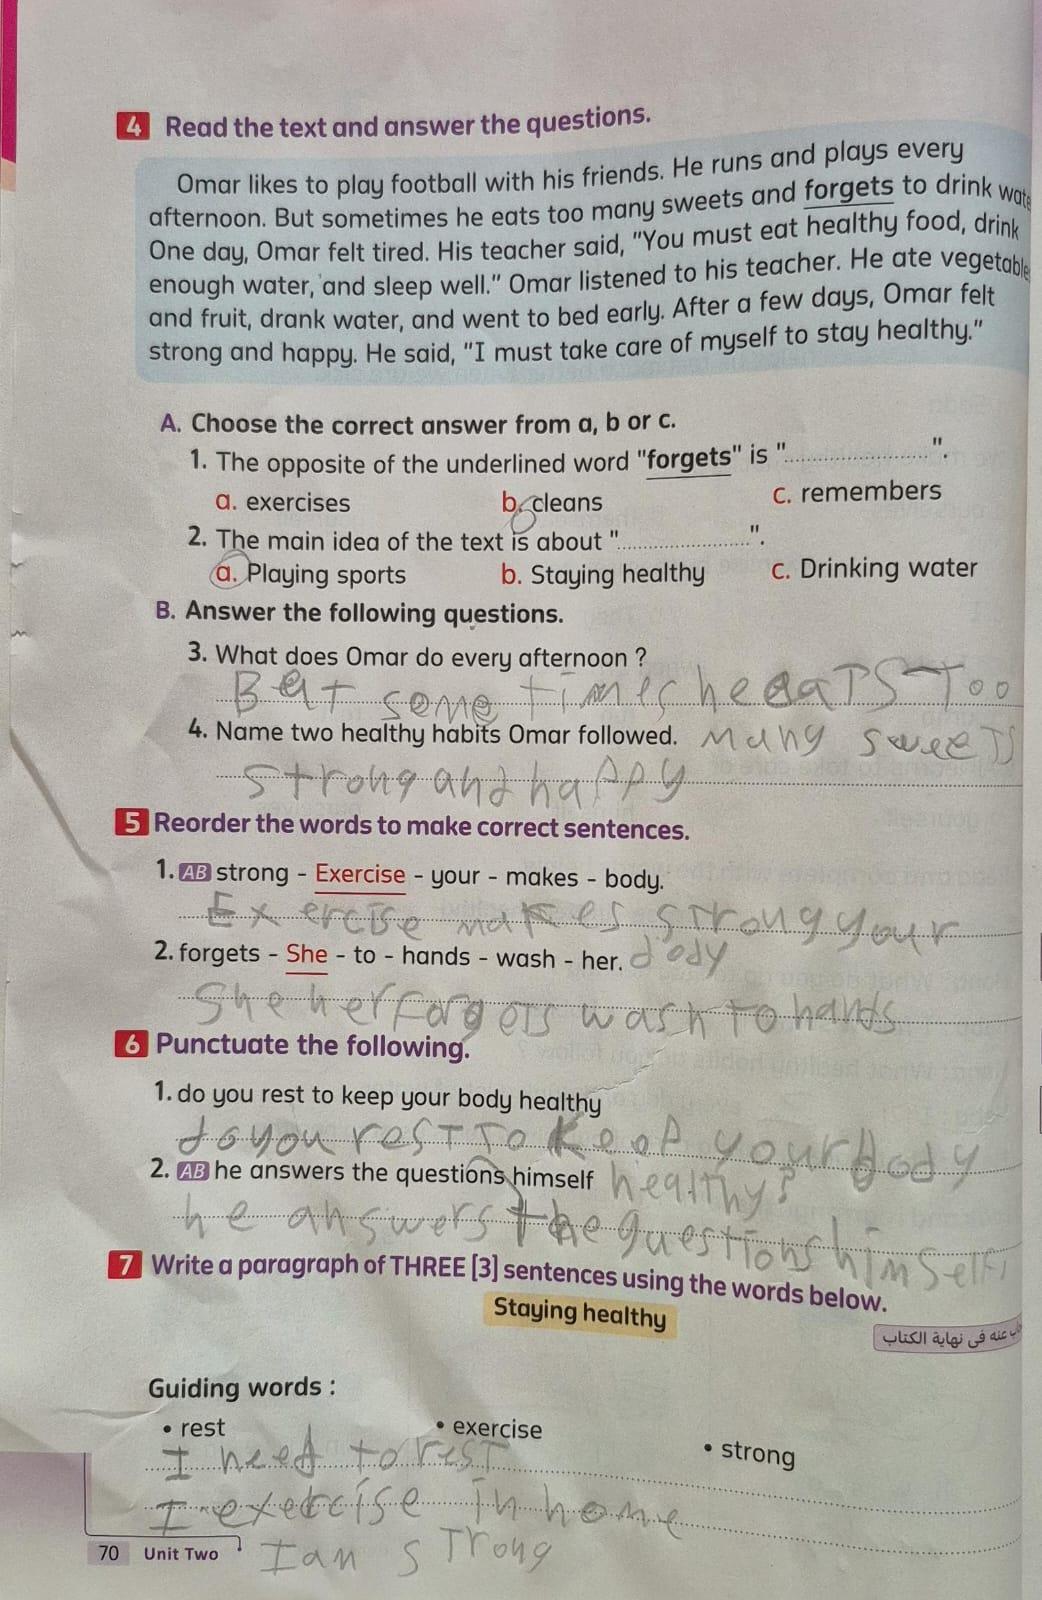 4 Read the text and answer the questions.
Omar likes to play football with his friends. He runs and plays every
afternoon. But sometimes he eats too many sweets and forgets to drink
One day, Omar felt tired. His teacher said, "You must eat healthy food, drink
enough water, and sleep well." Omar listened to his teacher. He ate
and fruit, drank water, and went to bed early. After a few days, Omar felt
strong and happy. He said, "I must take care of myself to stay healthy."
A. Choose the correct answer from a, b or c.
1. The opposite of the underlined word "forgets" is "........................".
a. exercises b. cleans c. remembers
2. The main idea of the text is about "......................".
a. Playing sports b. Staying healthy c. Drinking water
B. Answer the following questions.
3. What does Omar do every afternoon ?
But some times he eats Too
4. Name two healthy habits Omar followed. many sweets
strong and happy
5 Reorder the words to make correct sentences.
1. AB strong - Exercise - your - makes - body.
Exercise makes strong your
2. forgets - She - to - hands - wash - her. body
She her forgets wash to hands
6 Punctuate the following.
1. do you rest to keep your body healthy
do you rest to keep your body
2. AB he answers the questions himself healthy?
he answers the questions himself.
7 Write a paragraph of THREE [3] sentences using the words below.
Staying healthy
عنه فى نهاية الكتاب
Guiding words :
• rest • exercise • strong
I need to rest
I exercise in home
I am strong
70 Unit Two